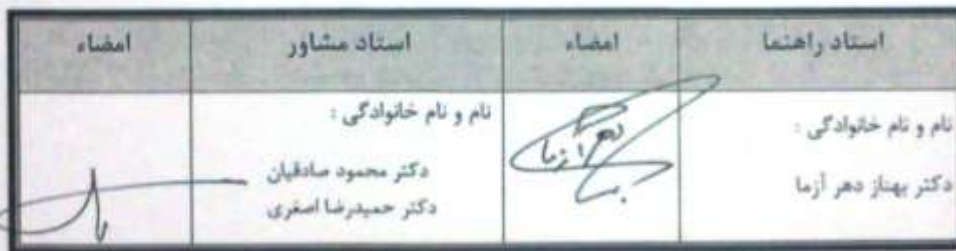 استاد راهنما
امضاء
استاد مشاور
امضاء
نام و نام خانوادگی :
دکتر بهناز دهر آزما
دهر آزما
نام و نام خانوادگی :
دکتر محمود صادقیان
دکتر حمیدرضا اصغری